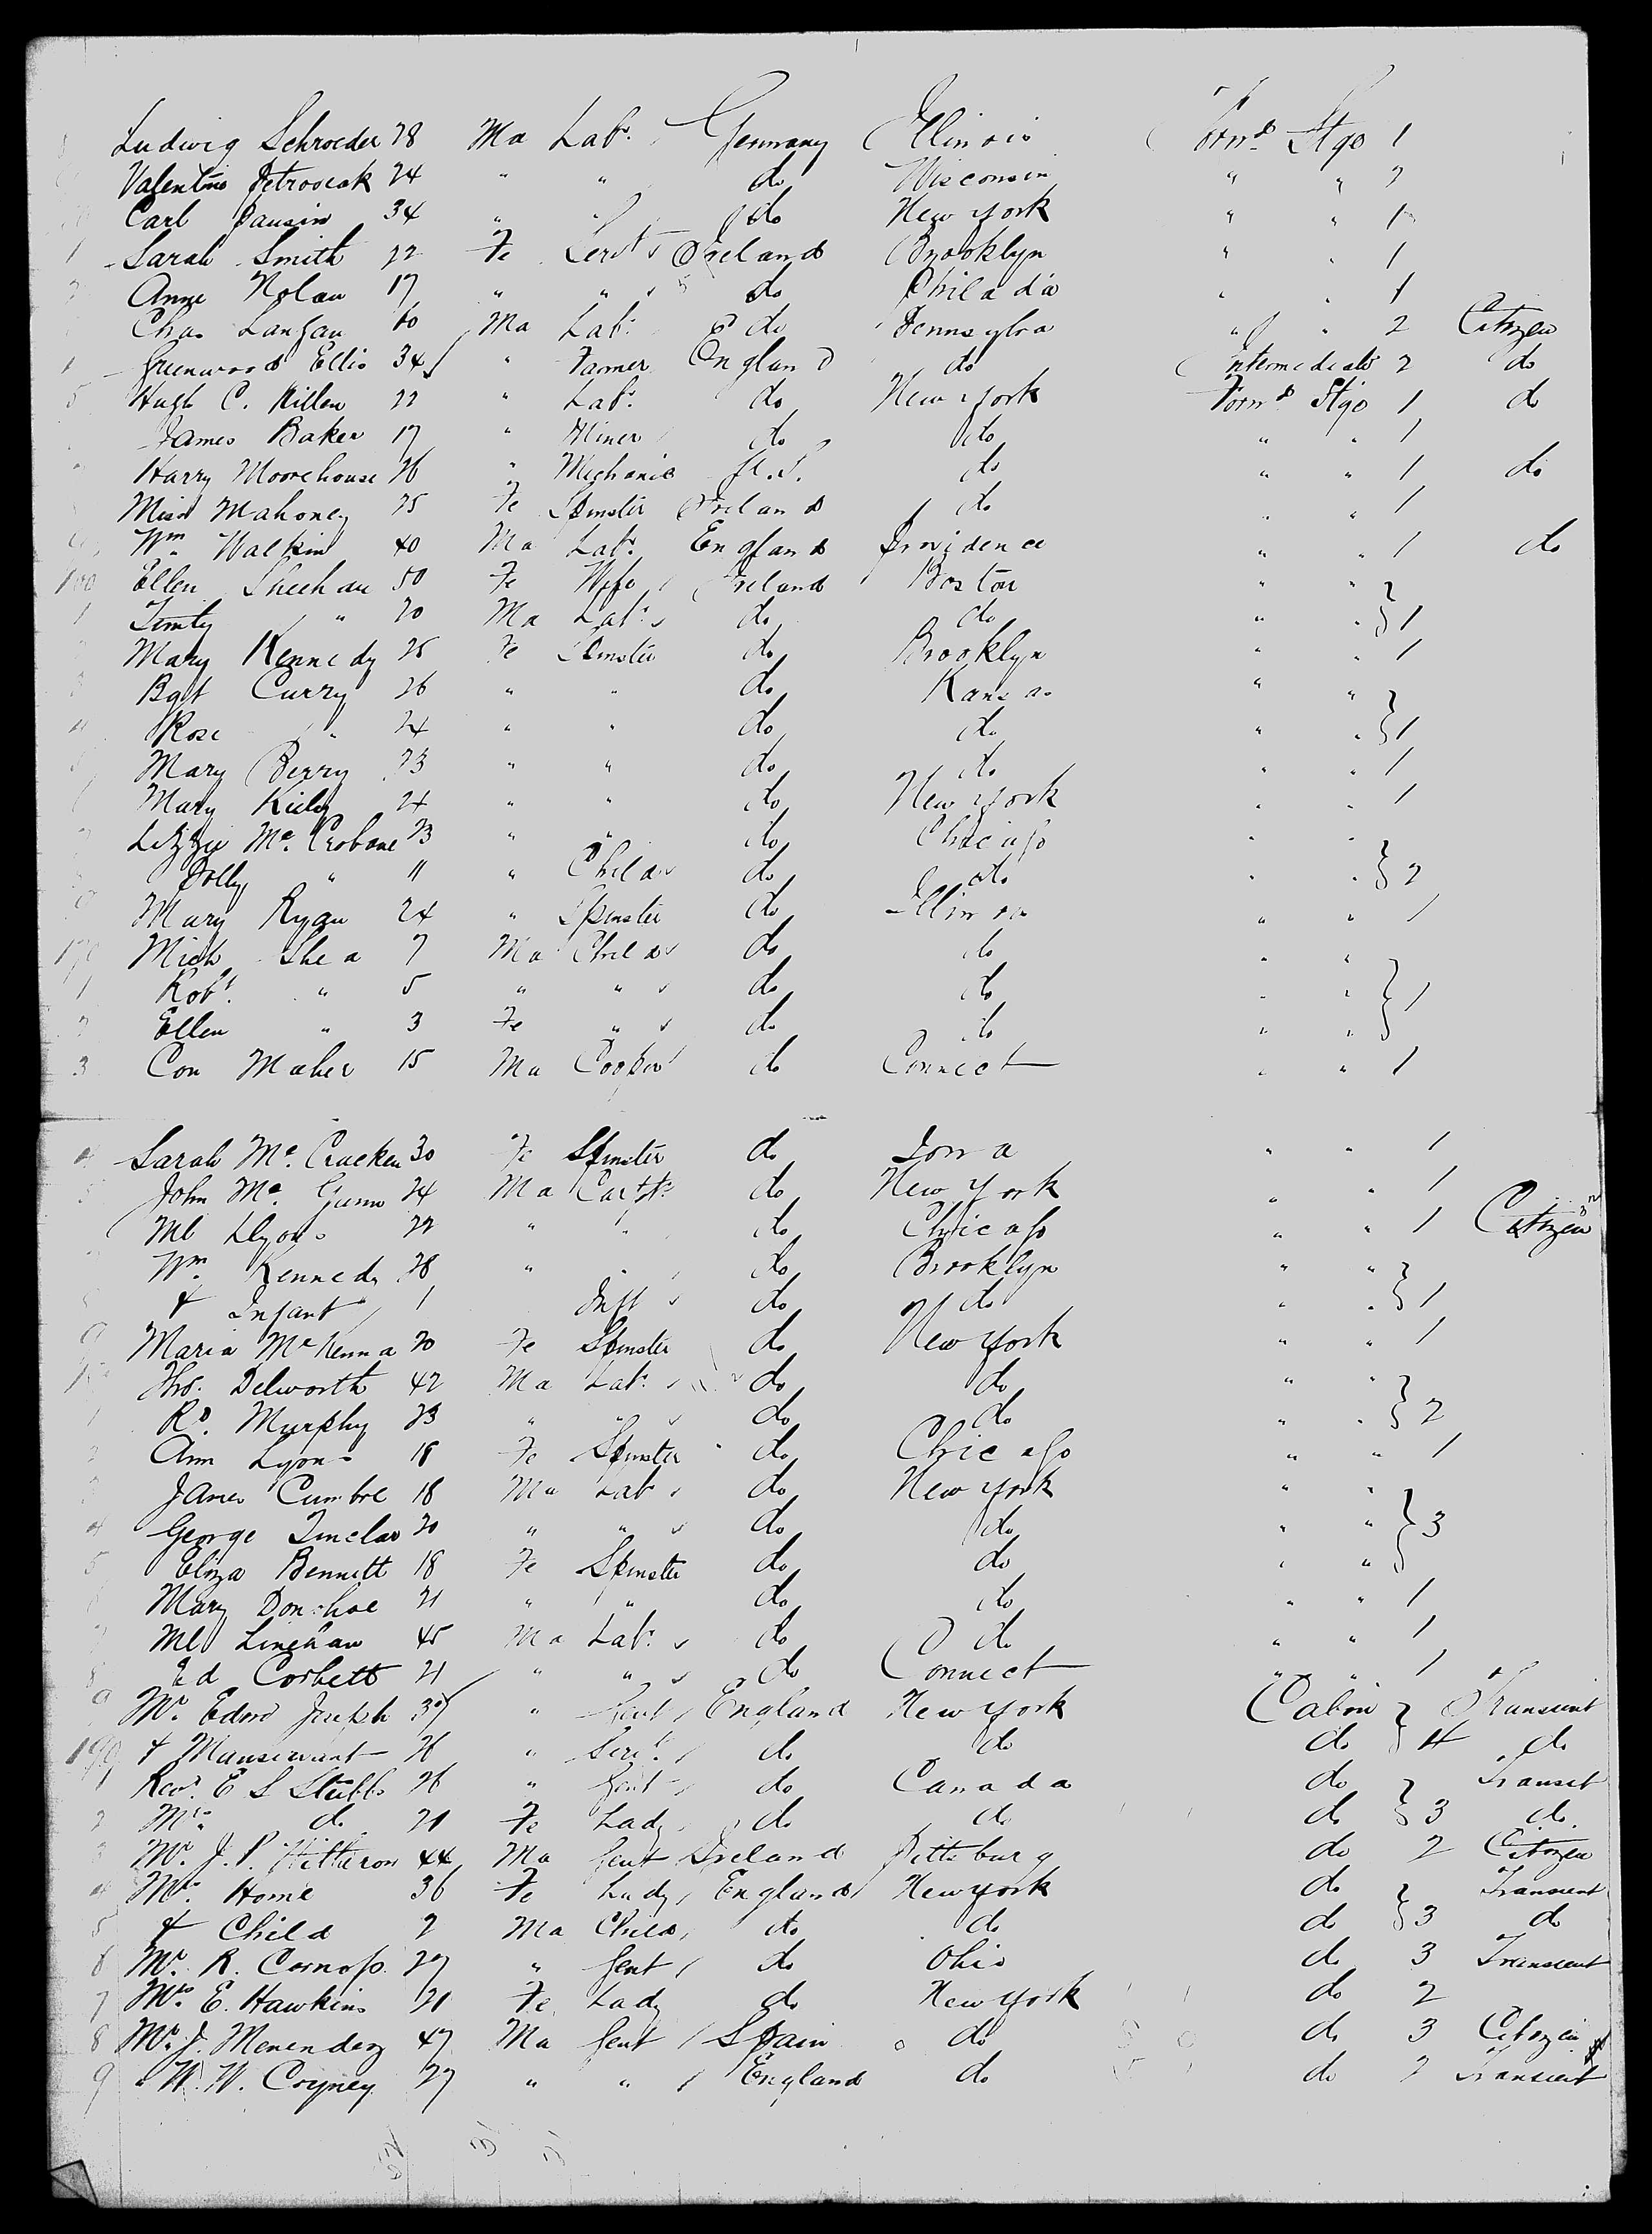 Ludwig Schroeder 28 Ma Labr. Germany Illinois Forwd Stge 1
Valentins Petroseak 24 " " do Wisconsin " " 2
Carl Jansin 34 " " do New York " " 1
1 Sarah Smith 22 Fe Servt Ireland Brooklyn " " 1
Anne Nolan 17 " " do Philada " " 1
Chas Langan 60 Ma Labr. do Pennsylva " " 2 Citizen
Greenwood Ellis 34 " Farmer England do Intermediate 2 do
5 Hugh C. Killen 22 " Labr. do New York Forwd Stge 1 do
James Baker 17 " Miner do do " " 1
Harry Moorehouse 26 " Mechanic U.S. do " " 1 do
Miss Mahoney 25 Fe Spinster Ireland do " " 1
Wm. Walkin 40 Ma Labr. England Providence " " 1 do
Ellen Sheehan 50 Fe Wife Ireland Boston " "
1 Timty " 20 Ma Labr. do do " " } 1
Mary Kennedy 25 Fe Spinster do Brooklyn " " 1
Bgt Curry 26 " " do Kansas " "
Rose " 24 " " do do " " } 1
Mary Berry 23 " " do do " " 1
Mary Kiely 24 " " do New York " " 1
Lizzie Mc. Crobane 23 " " do Chicago " "
Polly " 11 " Child do do " " } 2
Mary Ryan 24 " Spinster do Illinois " " 1
Mich Shea 7 Ma Child do do " "
1 Robt. " 5 " " do do " " } 1
2 Ellen " 3 Fe " do do " "
3 Con Maher 15 Ma Cooper do Connect " " 1
4 Sarah Mc. Cracken 30 Fe Spinster do Iowa " " 1
5 John Mc. Gunn 24 Ma Carptr do New York " " 1
Ml Lyons 22 " " do Chicago " " 1 Citizen
Wm. Kennedy 28 " " do Brooklyn " "
& Infant 1 Inft do do " " } 1
9 Maria McKenna 20 Fe Spinster do New York " " 1
Thos. Delworth 42 Ma Labr. do do " "
1 Rd. Murphy 23 " " do do " " } 2
2 Ann Lyons 18 Fe Spinster do Chicago " " 1
3 James Cumbre 18 Ma Labr do New York " "
4 George Sinclar 20 " " do do " " } 3
5 Eliza Bennett 18 Fe Spinster do do " "
Mary Donohoe 21 " " do do " " 1
Ml Linehan 45 Ma Labr. do do " " 1
8 Ed Corbett 21 " " do Connect " " 1
9 Mr. Edwd Joseph 37 " Gent England New York Cabin Transient
190 & Manservant 26 " Servt. do do do } 4 do
1 Revd. E S Stubbs 26 " Gent do Canada do Transit
2 Mrs. do. 21 Fe Lady do do do } 3 do.
3 Mr. J. P. Witheron 44 Ma Gent Ireland Pittsburg do 2 Citizen
4 Mrs. Home 36 Fe Lady England New York do Transient
5 & Child 2 Ma Child do do do } 3 do
6 Mr. R. 27 " Gent do Ohio do 3 Transient
7 Mrs. E. Hawkins 21 Fe Lady do New York do 2
8 Mr. J. Menendez 47 Ma Gent Spain do do 3 Citizen
9 " W. W. Coryney 27 " " England do do 2 Transient